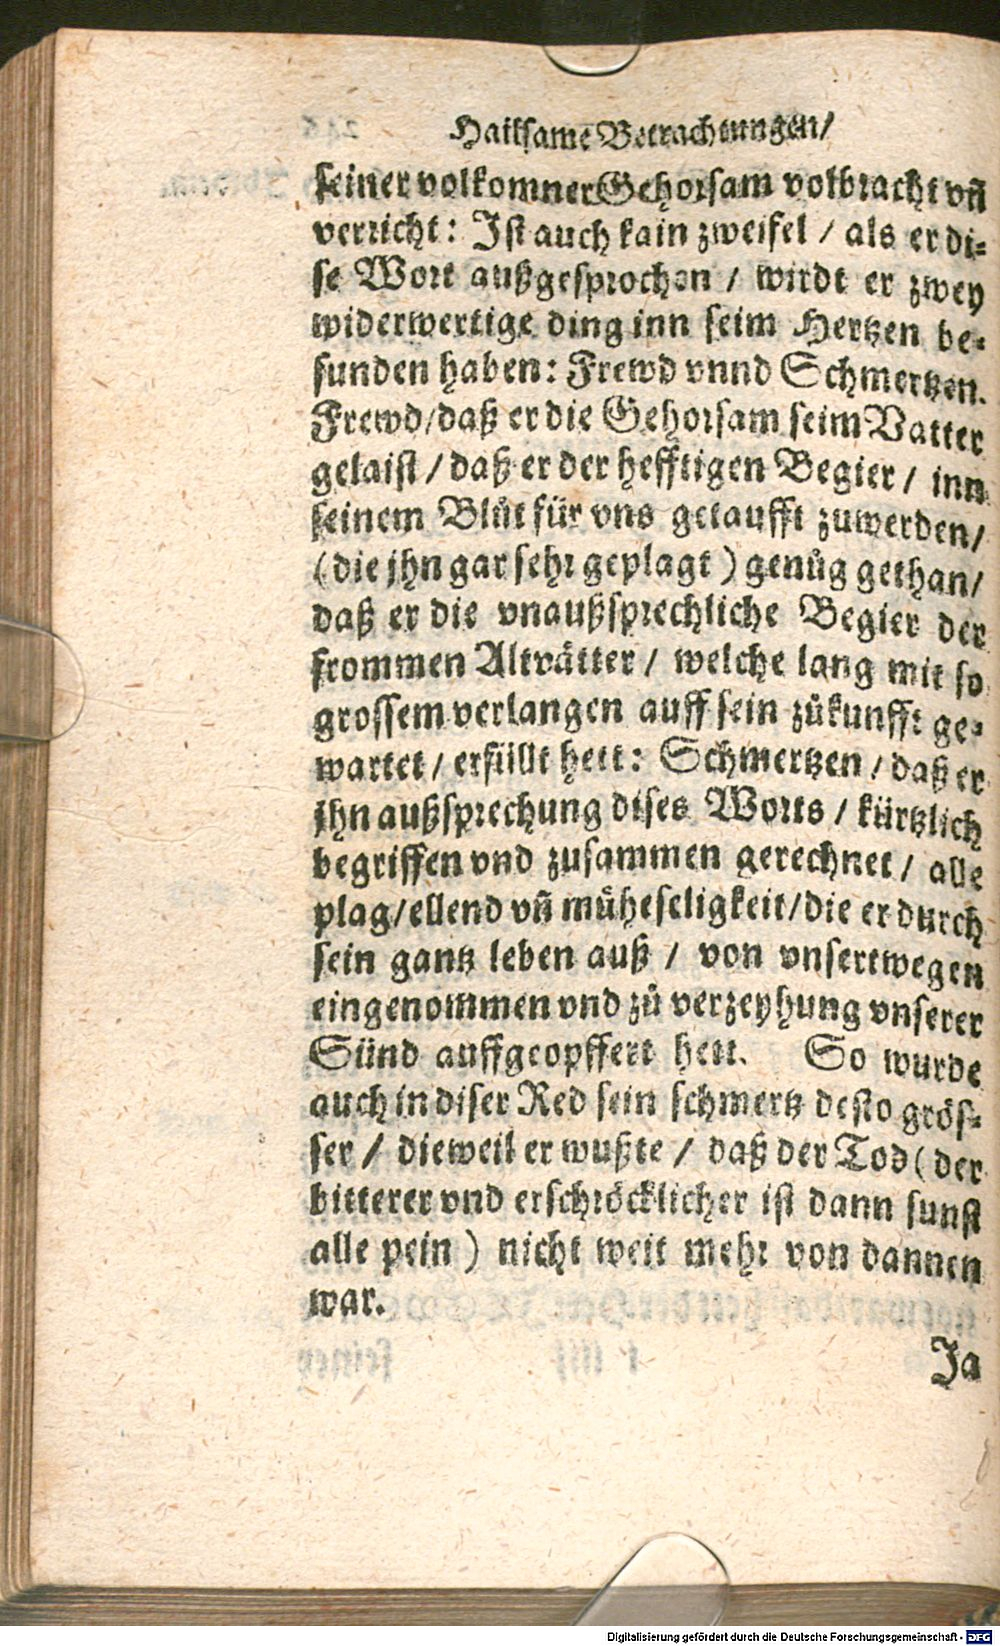 Hailsame Betrachtungen/
seiner volkomner Gehorsam volbracht vñ
verricht: Ist auch kain zweifel / als er di-
se Wort außgesprochen / wirdt er zwey
widerwertige ding inn seim Hertzen be-
funden haben: Frewd vnnd Schmertzen.
Frewd/daß er die Gehorsam seim Vatter
gelaist / daß er der hefftigen Begier / inn
seinem Blůt für vns getaufft zuwerden/
(die jhn gar sehr geplagt) genůg gethan/
daß er die vnaußsprechliche Begier der
frommen Altvätter / welche lang mit so
grossem verlangen auff sein zůkunfft ge-
wartet / erfüllt hett: Schmertzen / daß er
jhn außsprechung dises Worts / kürtzlich
begriffen vnd zusammen gerechnet / alle
plag/ellend vñ müheseligkeit/die er durch
sein gantz leben auß / von vnsertwegen
eingenommen vnd zů verzeyhung vnserer
Sünd auffgeopffert hett. So wurde
auch in diser Red sein schmertz desto grös-
ser / dieweil er wußte / daß der Tod (der
bitterer vnd erschröcklicher ist dann sunst
alle pein) nicht weit mehr von dannen
war.
Ja
Digitalisierung gefördert durch die Deutsche Forschungsgemeinschaft - DFG